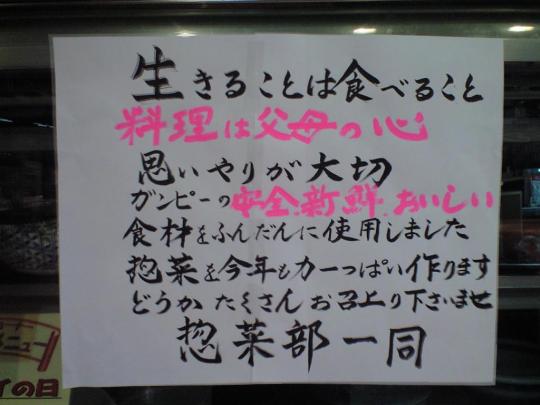 生きることは食べること
料理は父母の心
思いやりが大切
ガンピーの安全.新鮮.おいしい
食材をふんだんに使用しました
惣菜を今年も力一っぱい作ります
どうか たくさん お召上り下さいませ
惣菜部一同
ニュー
の日